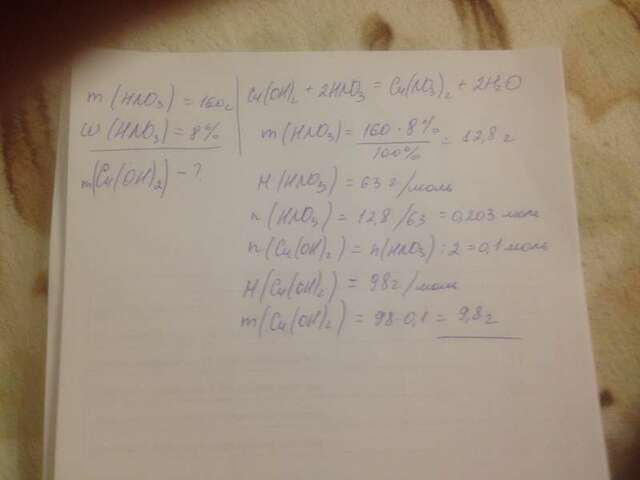 m(HNO₃) = 160г
W(HNO₃) = 8%
m(Cu(OH)₂) - ?
Cu(OH)₂ + 2HNO₃ = Cu(NO₃)₂ + 2H₂O
m(HNO₃) = 160 · 8% / 100% = 12,8 г
M(HNO₃) = 63 г/моль
n(HNO₃) = 12,8/63 = 0,203 моль
n(Cu(OH)₂) = n(HNO₃) : 2 = 0,1 моль
M(Cu(OH)₂) = 98г/моль
m(Cu(OH)₂) = 98·0,1 = 9,8 г